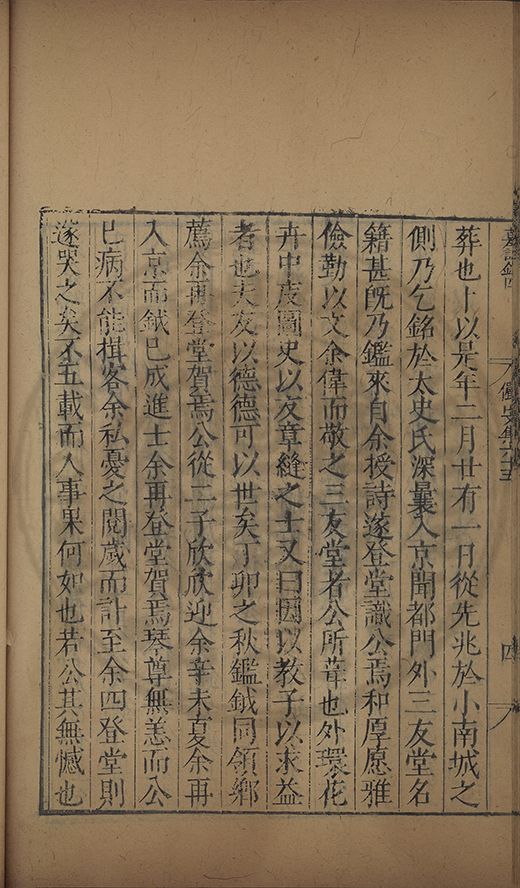 葬也卜以是年二月廿有一日從先兆於小南城之
側乃乞銘於太史氏深曩入京聞都門外三友堂名
籍甚旣乃鑑來自余授詩遂登堂識公焉和厚愿雅
儉勤以文余偉而敬之三友堂者公所葺也外環花
卉中庋圖史以友章縫之士又曰因以教子以求益
者也夫友以德德可以世矣丁卯之秋鑑鉞同領鄉
薦余再登堂賀焉公從二子欣欣迎余辛未夏余再
入京而鉞已成進士余再登堂賀焉琴尊無恙而公
已病不能楫客余私憂之閱歲而計至余四登堂則
遂哭之矣不五載而人事果何如也若公其無憾也
四